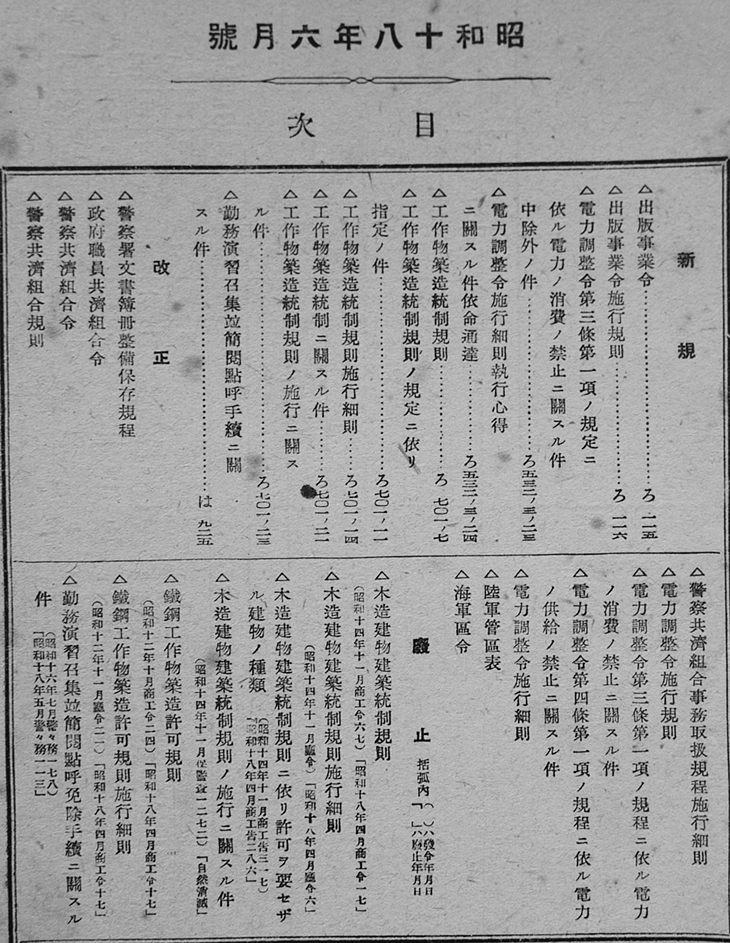 昭和十八年六月號
目次
新規
△出版事業令………ろ 一一五
△出版事業令施行規則………ろ 一一六
△電力調整令第三條第一項ノ規定ニ
依ル電力ノ消費ノ禁止ニ關スル件
中除外ノ件………ろ五三二ノ三ノ二三
△電力調整令施行細則執行心得
ニ關スル件依命通達………ろ五三二ノ三ノ二四
△工作物築造統制規則………ろ 七〇一ノ七
△工作物築造統制規則ノ規定ニ依リ
指定ノ件………ろ七〇一ノ一一
△工作物築造統制規則施行細則………ろ七〇一ノ一四
△工作物築造統制ニ關スル件………ろ七〇一ノ二一
△工作物築造統制規則ノ施行ニ關ス
ル件………ろ七〇一ノ二三
△勤務演習召集竝簡閲點呼手續ニ關
スル件………は 九二五
改正
△警察署文書簿冊整備保存規程
△政府職員共濟組合令
△警察共濟組合令
△警察共濟組合規則
△警察共濟組合事務取扱規程施行細則
△電力調整令施行規則
△電力調整令第三條第一項ノ規程ニ依ル電力
ノ消費ノ禁止ニ關スル件
△電力調整令第四條第一項ノ規程ニ依ル電力
ノ供給ノ禁止ニ關スル件
△電力調整令施行細則
△陸軍管區表
△海軍區令
廢止 括弧內（　）ハ發令年月日
「　」ハ廢止年月日
△木造建物建築統制規則
（昭和十四年十一月商工令六七）「昭和十八年四月商工令一七」
△木造建物建築統制規則施行細則
（昭和十四年十一月廳令）「昭和十八年四月廳令六」
△木造建物建築統制規則ニ依リ許可ヲ要セザ
ル建物ノ種類
（昭和十四年十一月商工告三一七）
「昭和十八年四月商工告二八六」
△木造建物建築統制規則ノ施行ニ關スル件
（昭和十四年十一月保警發一二七二）「自然消滅」
△鐵鋼工作物築造許可規則
（昭和十二年十月商工令二四）「昭和十八年四月商工令十七」
△鐵鋼工作物築造許可規則施行細則
（昭和十二年十一月廳令二一）「昭和十八年四月商工令十七」
△勤務演習召集竝簡閲點呼免除手續ニ關スル
件
（昭和十六年七月警々務一七八）
「昭和十八年五月警々務一一三」